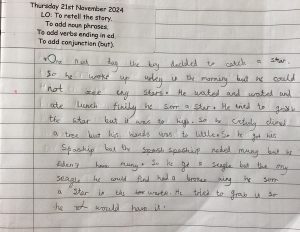 Thursday 21st November 2024
LO: To retell the story.
To add noun phrases.
To add verbs ending in ed.
To add conjunction (but).
One day the boy decided to catch a star.
So he woke up erley in the morning but he could
not see eny stars. He wated and wated and
ate lunch finily he sorr a star. He tried to
the star but it was to high. So he climd
a tree but his hands was to little. So he got his
Spaship but the spaship neded muny but he
have muny. So he got a seagle but the ony
seagle he could find had a broken wing he sorr
a star in the warter. He tried to grab it so
he would have it!